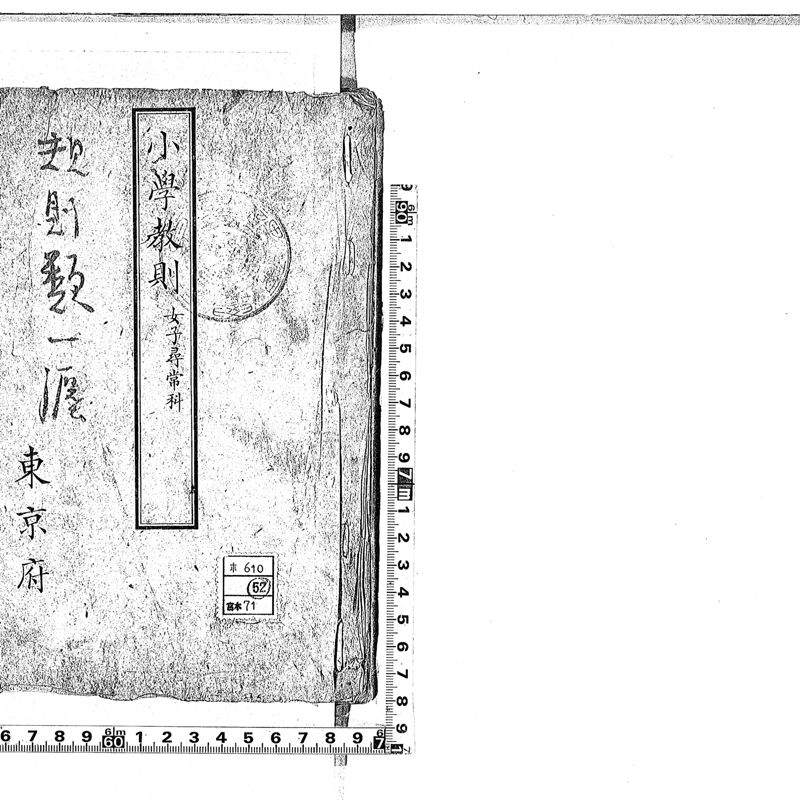 小學教則 女子尋常科
規則類一
東京府
ホ 610
52
宮本 71
9 6m 90 1 2 3 4 5 6 7 8 9 7m 1 2 3 4 5 6 7 8 9
6 7 8 9 6m 60 1 2 3 4 5 6 7 8 9 6 7